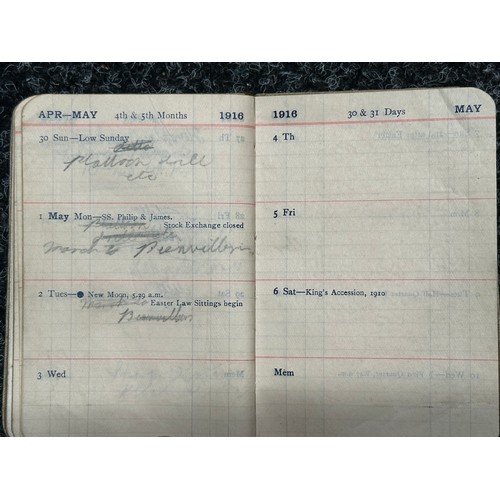 APR—MAY 4th & 5th Months 1916
30 Sun—Low Sunday
Platoon drill
etc
1 May Mon—SS. Philip & James.
Stock Exchange closed
March to
2 Tues—● New Moon, 5.29 a.m.
Easter Law Sittings begin
3 Wed
1916 30 & 31 Days MAY
4 Th
5 Fri
6 Sat—King's Accession, 1910
Mem